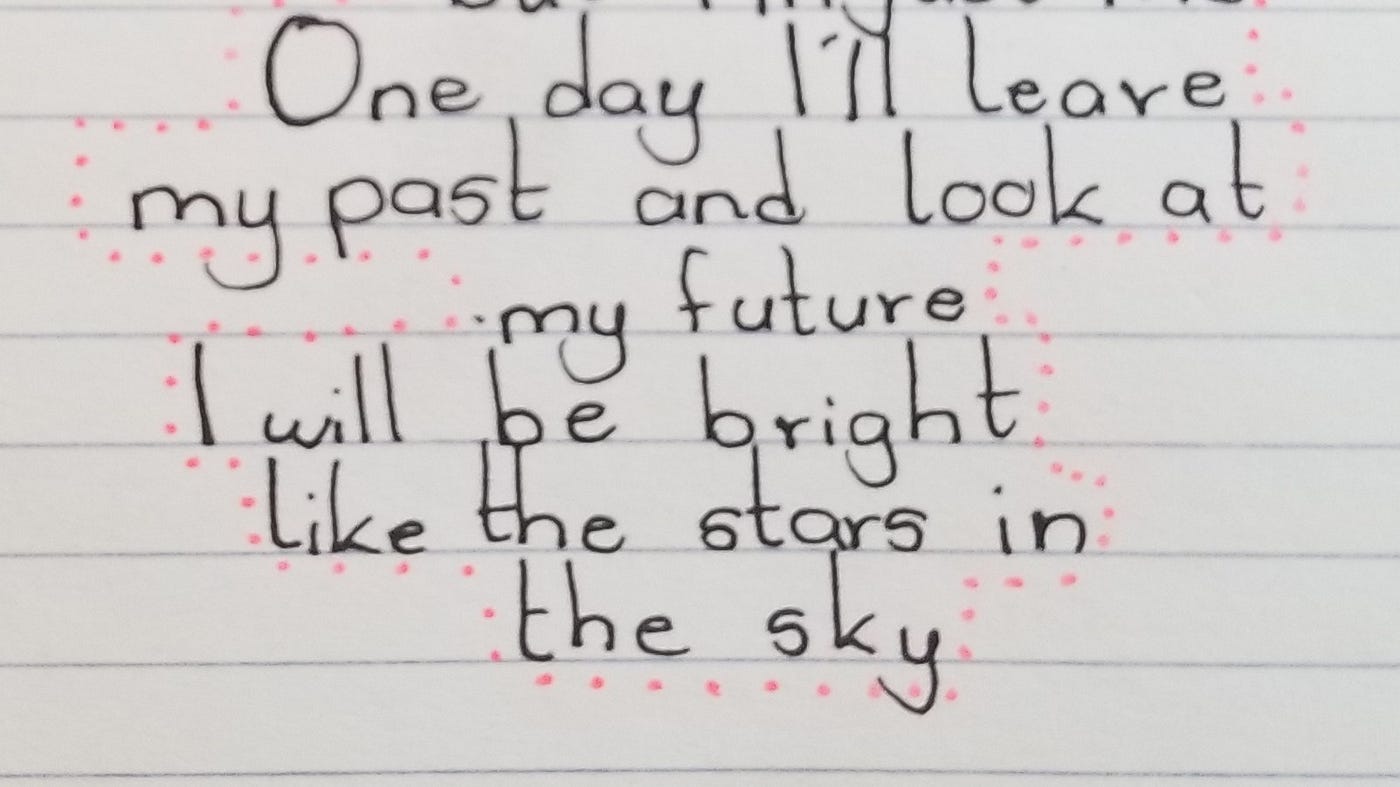 One day I'll leave
my past and look at
my future
I will be bright
like the stars in
the sky